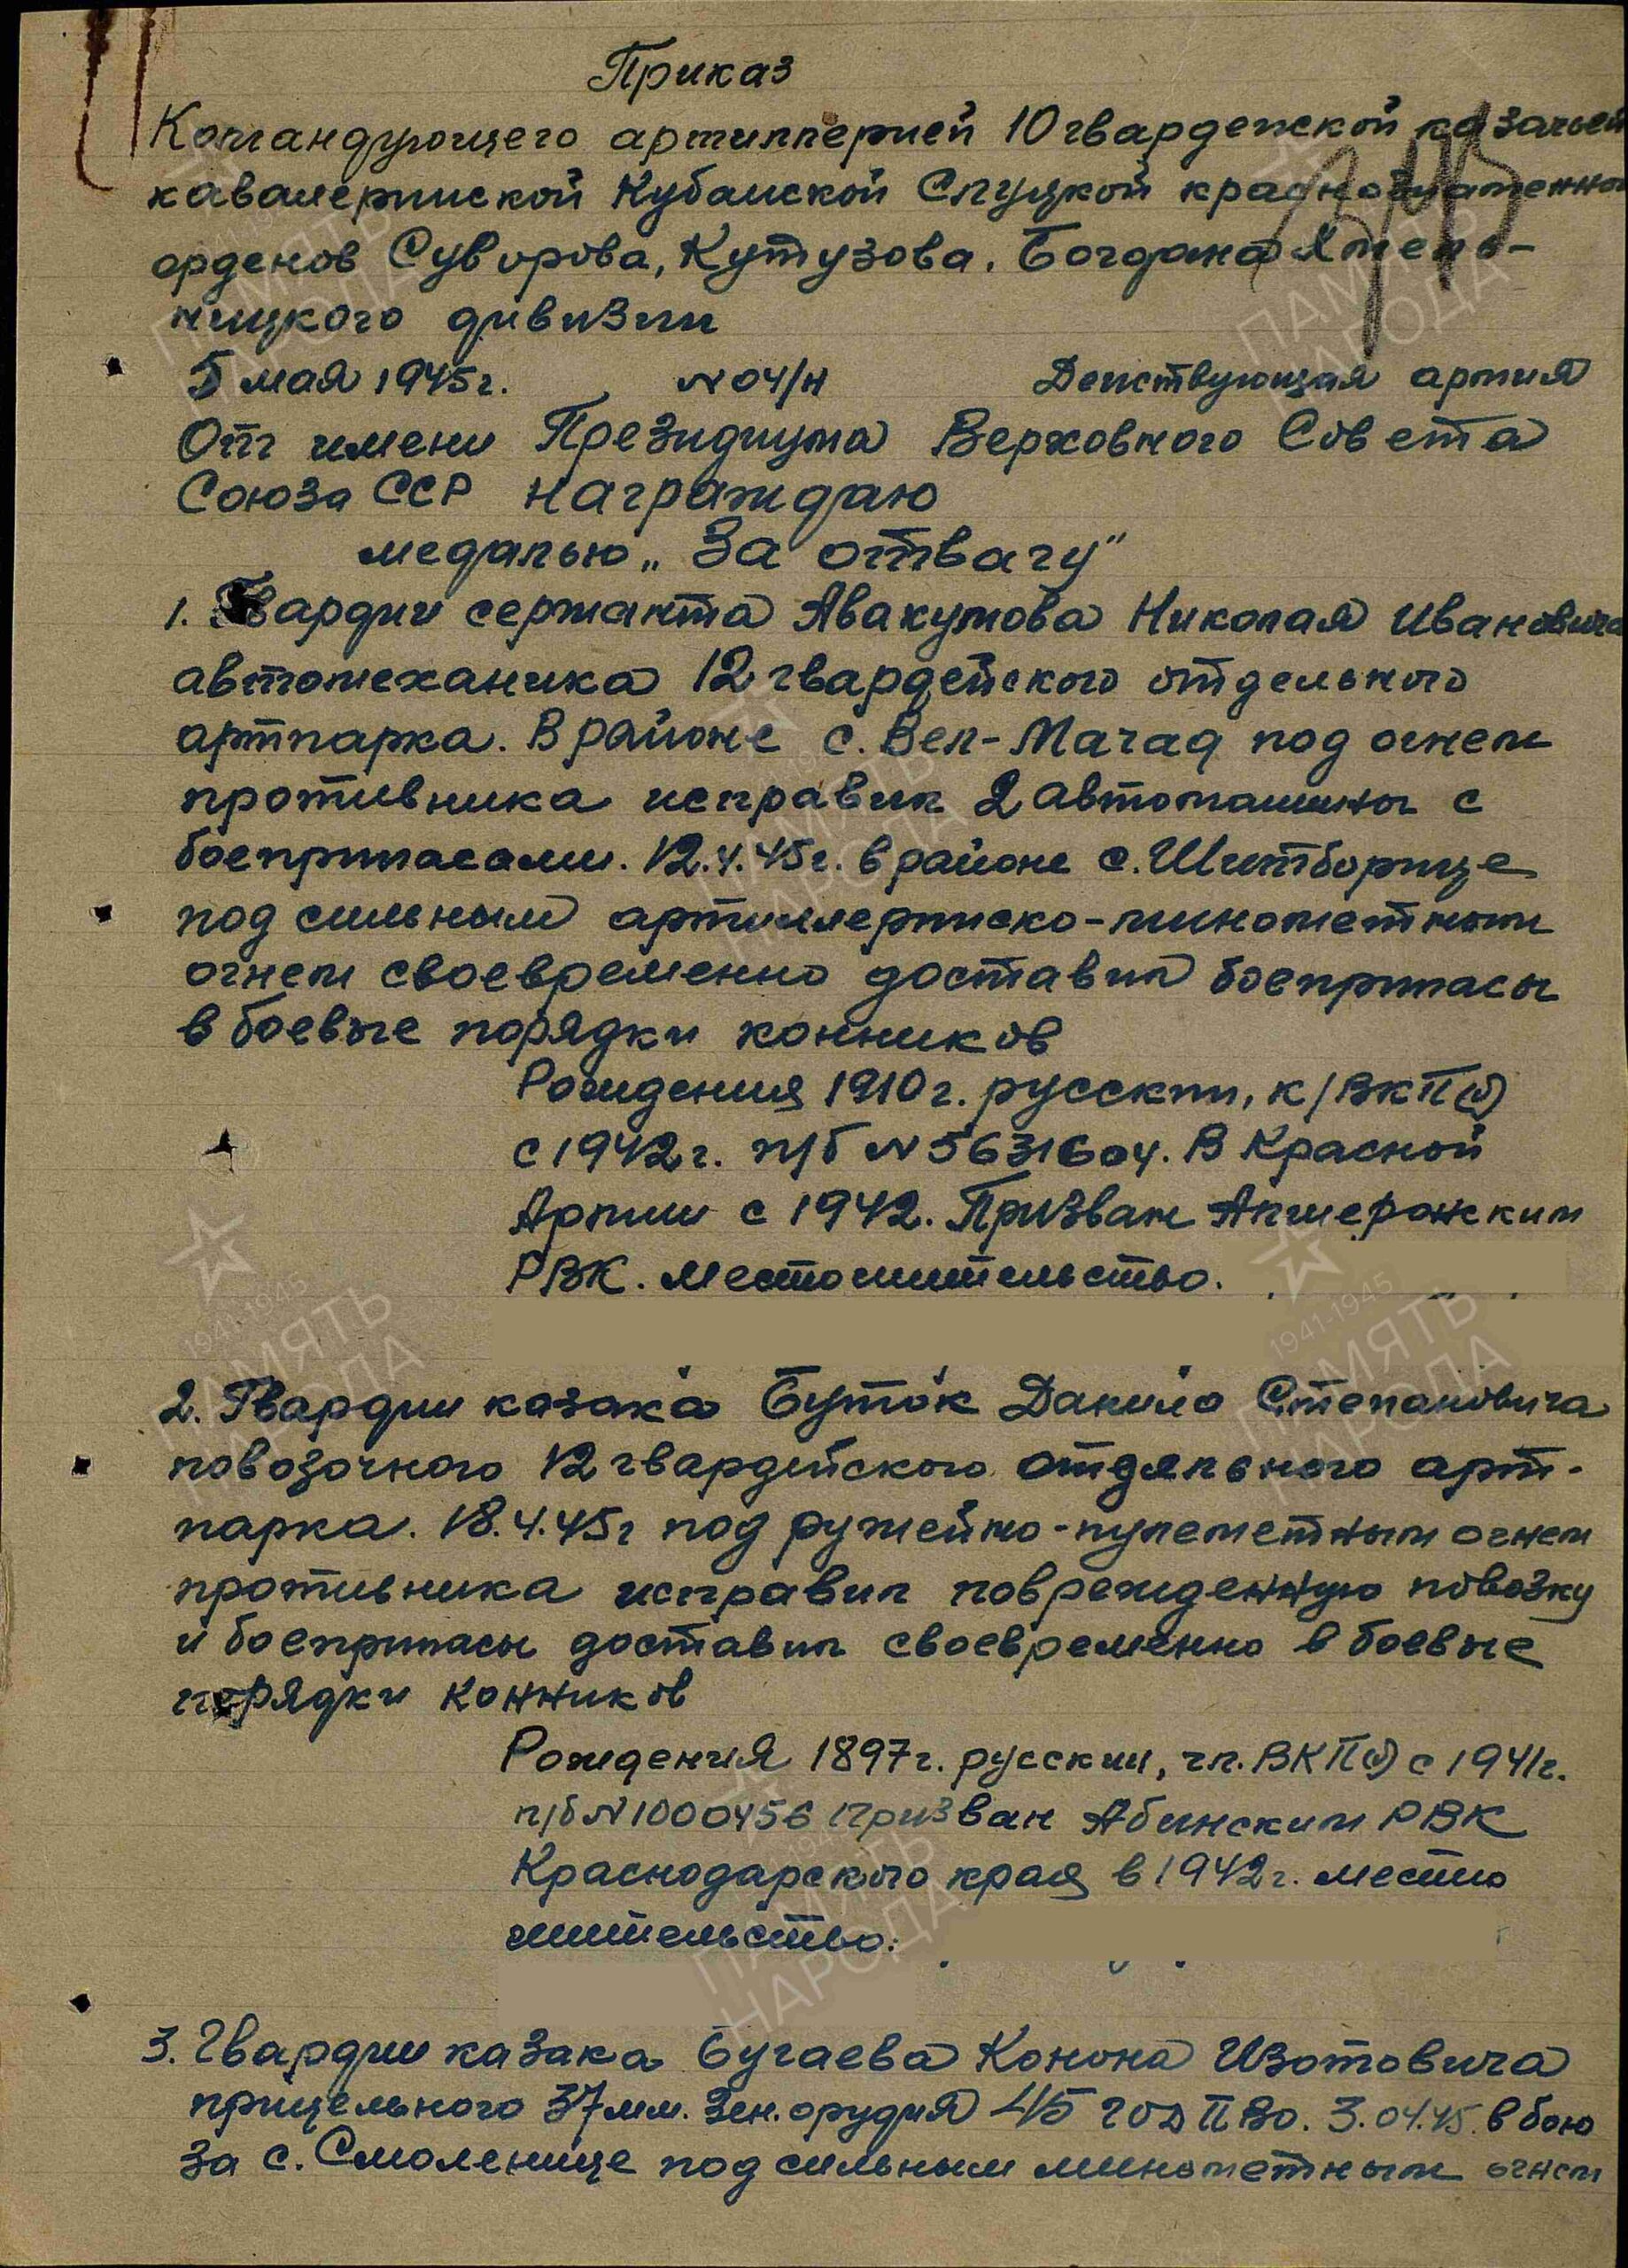 Приказ
Командующего артиллерией 10 гвардейской казачьей
кавалерийской Кубанской Слуцкой краснознаменной
орденов Суворова, Кутузова, Богдана Хмель-
ницкого дивизии
5 мая 1945г. № 04/Н Действующая армия
От имени Президиума Верховного Совета
Союза ССР награждаю
медалью „За отвагу"
1. Гвардии сержанта Авакумова Николая Ивановича
автомеханика 12 гвардейского отдельного
артпарка. В районе с. Вел-Мачад под огнем
противника исправил 2 автомашины с
боеприпасами. 12.4.45г. в районе с. Шитборице
под сильным артиллерийско-минометным
огнем своевременно доставил боеприпасы
в боевые порядки конников
Рождения 1910г. русский, к/ВКП(б)
с 1942г. п/б № 5631604. В Красной
Армии с 1942. Призван Апшеронским
РВК. Местожительство.
2. Гвардии казака Буток Данила Степановича
повозочного 12 гвардейского отдельного арт-
парка. 18.4.45г под ружейно-пулеметным огнем
противника исправил поврежденную повозку
и боеприпасы доставил своевременно в боевые
порядки конников
Рождения 1897г. русский, чл. ВКП(б) с 1941г.
п/б № 1000456 призван Абинским РВК
Краснодарского края в 1942г. место
жительство:
3. Гвардии казака Бугаева Конона Изотовича
прицельного 37мм. Зен. орудия 45 ГОД ПВО. 3.04.45. в бою
за с. Смоленице под сильным минометным огнем
1941-1945
ПАМЯТЬ
НАРОДА